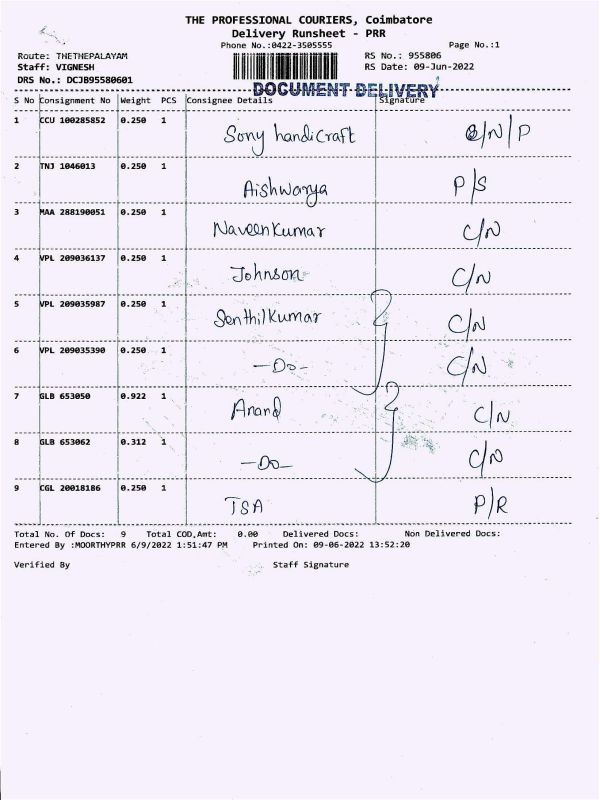 THE PROFESSIONAL COURIERS, Coimbatore
Delivery Runsheet - PRR
Phone No.:0422-3505555 Page No.:1
Route: THETHEPALAYAM RS No.: 955806
Staff: VIGNESH RS Date: 09-Jun-2022
DRS No.: DCJB95580601
DOCUMENT DELIVERY
S No Consignment No Weight PCS Consignee Details Signature
1 CCU 100285852 0.250 1 Sony handicraft C/N/P
2 TNJ 1046013 0.250 1 Aishwarya P/S
3 MAA 288190051 0.250 1 NaveenKumar C/N
4 VPL 209036137 0.250 1 Johnson C/N
5 VPL 209035987 0.250 1 SenthilKumar C/N
6 VPL 209035390 0.250 1 -Do- C/N
7 GLB 653050 0.922 1 Anand C/N
8 GLB 653062 0.312 1 -Do- C/N
9 CGL 20018186 0.250 1 TSA P/R
Total No. Of Docs: 9 Total COD,Amt: 0.00 Delivered Docs: Non Delivered Docs:
Entered By :MOORTHYPRR 6/9/2022 1:51:47 PM Printed On: 09-06-2022 13:52:20
Verified By Staff Signature